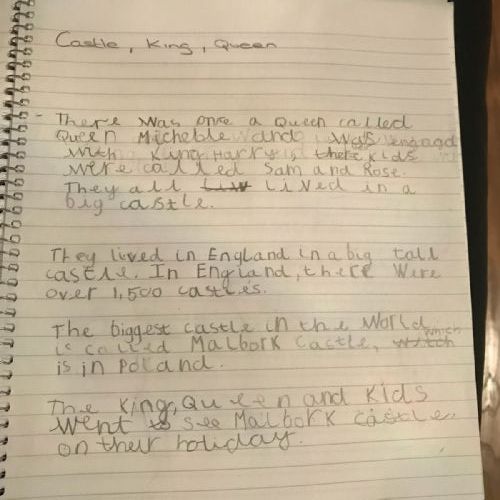 Castle, King, Queen
- There was once a Queen called
Queen Michelle and was engagd
with King Harry, there kids
were called Sam and Rose.
They all liv lived in a
big castle.
They lived in England in a big tall
castle. In England, there were
over 1,500 castles.
The biggest castle in the World
is called Malbork Castle, witch which
is in Poland.
The King, Queen and Kids
went to see Malbork castle
on their holiday.